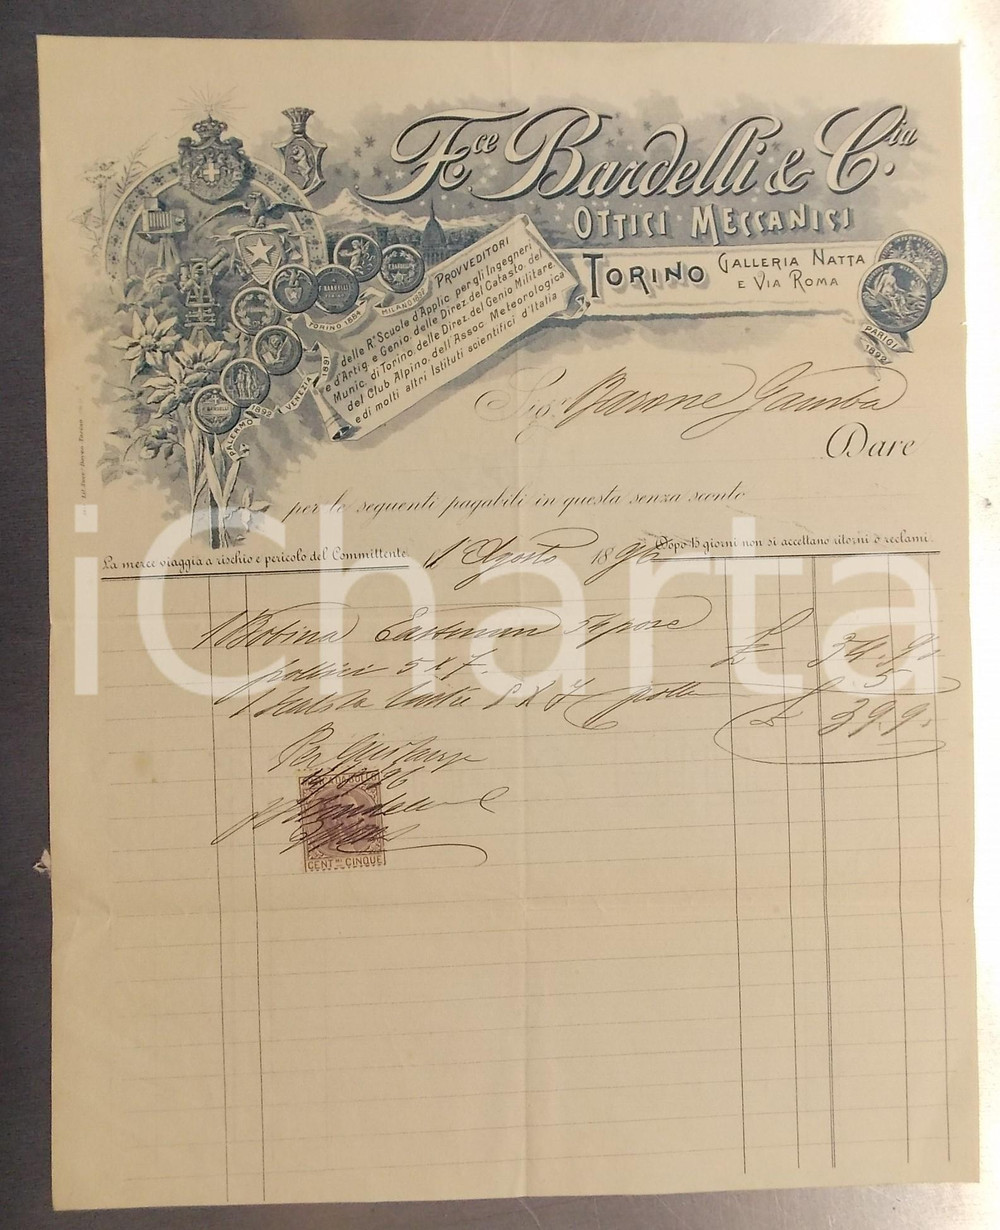 Fce Bardelli & C.ia
OTTICI MECCANICI
TORINO
GALLERIA NATTA
E VIA ROMA
PROVVEDITORI
delle Re Scuole d'Applic. per gli Ingegneri
e d'Artig. e Genio, delle Direz. del Catasto, del
Munic. di Torino, delle Direz. del Genio Militare,
del Club Alpino, dell'Assoc. Meteorologica
e di molti altri Istituti scientifici d'Italia
TORINO 1884
VENEZIA 1891
PALERMO 1892
PARIGI
1892
F. BARDELLI
Sigr Barone Gamba
Dare
per le seguenti pagabili in questa senza sconto
La merce viaggia a rischio e pericolo del Committente.
1 Agosto 1896
Dopo 15 giorni non si accettano ritorni o reclami.
1 Bobina Eastman 54 pose
5 x 7.
39.90
CENT.MI CINQUE
iCharta